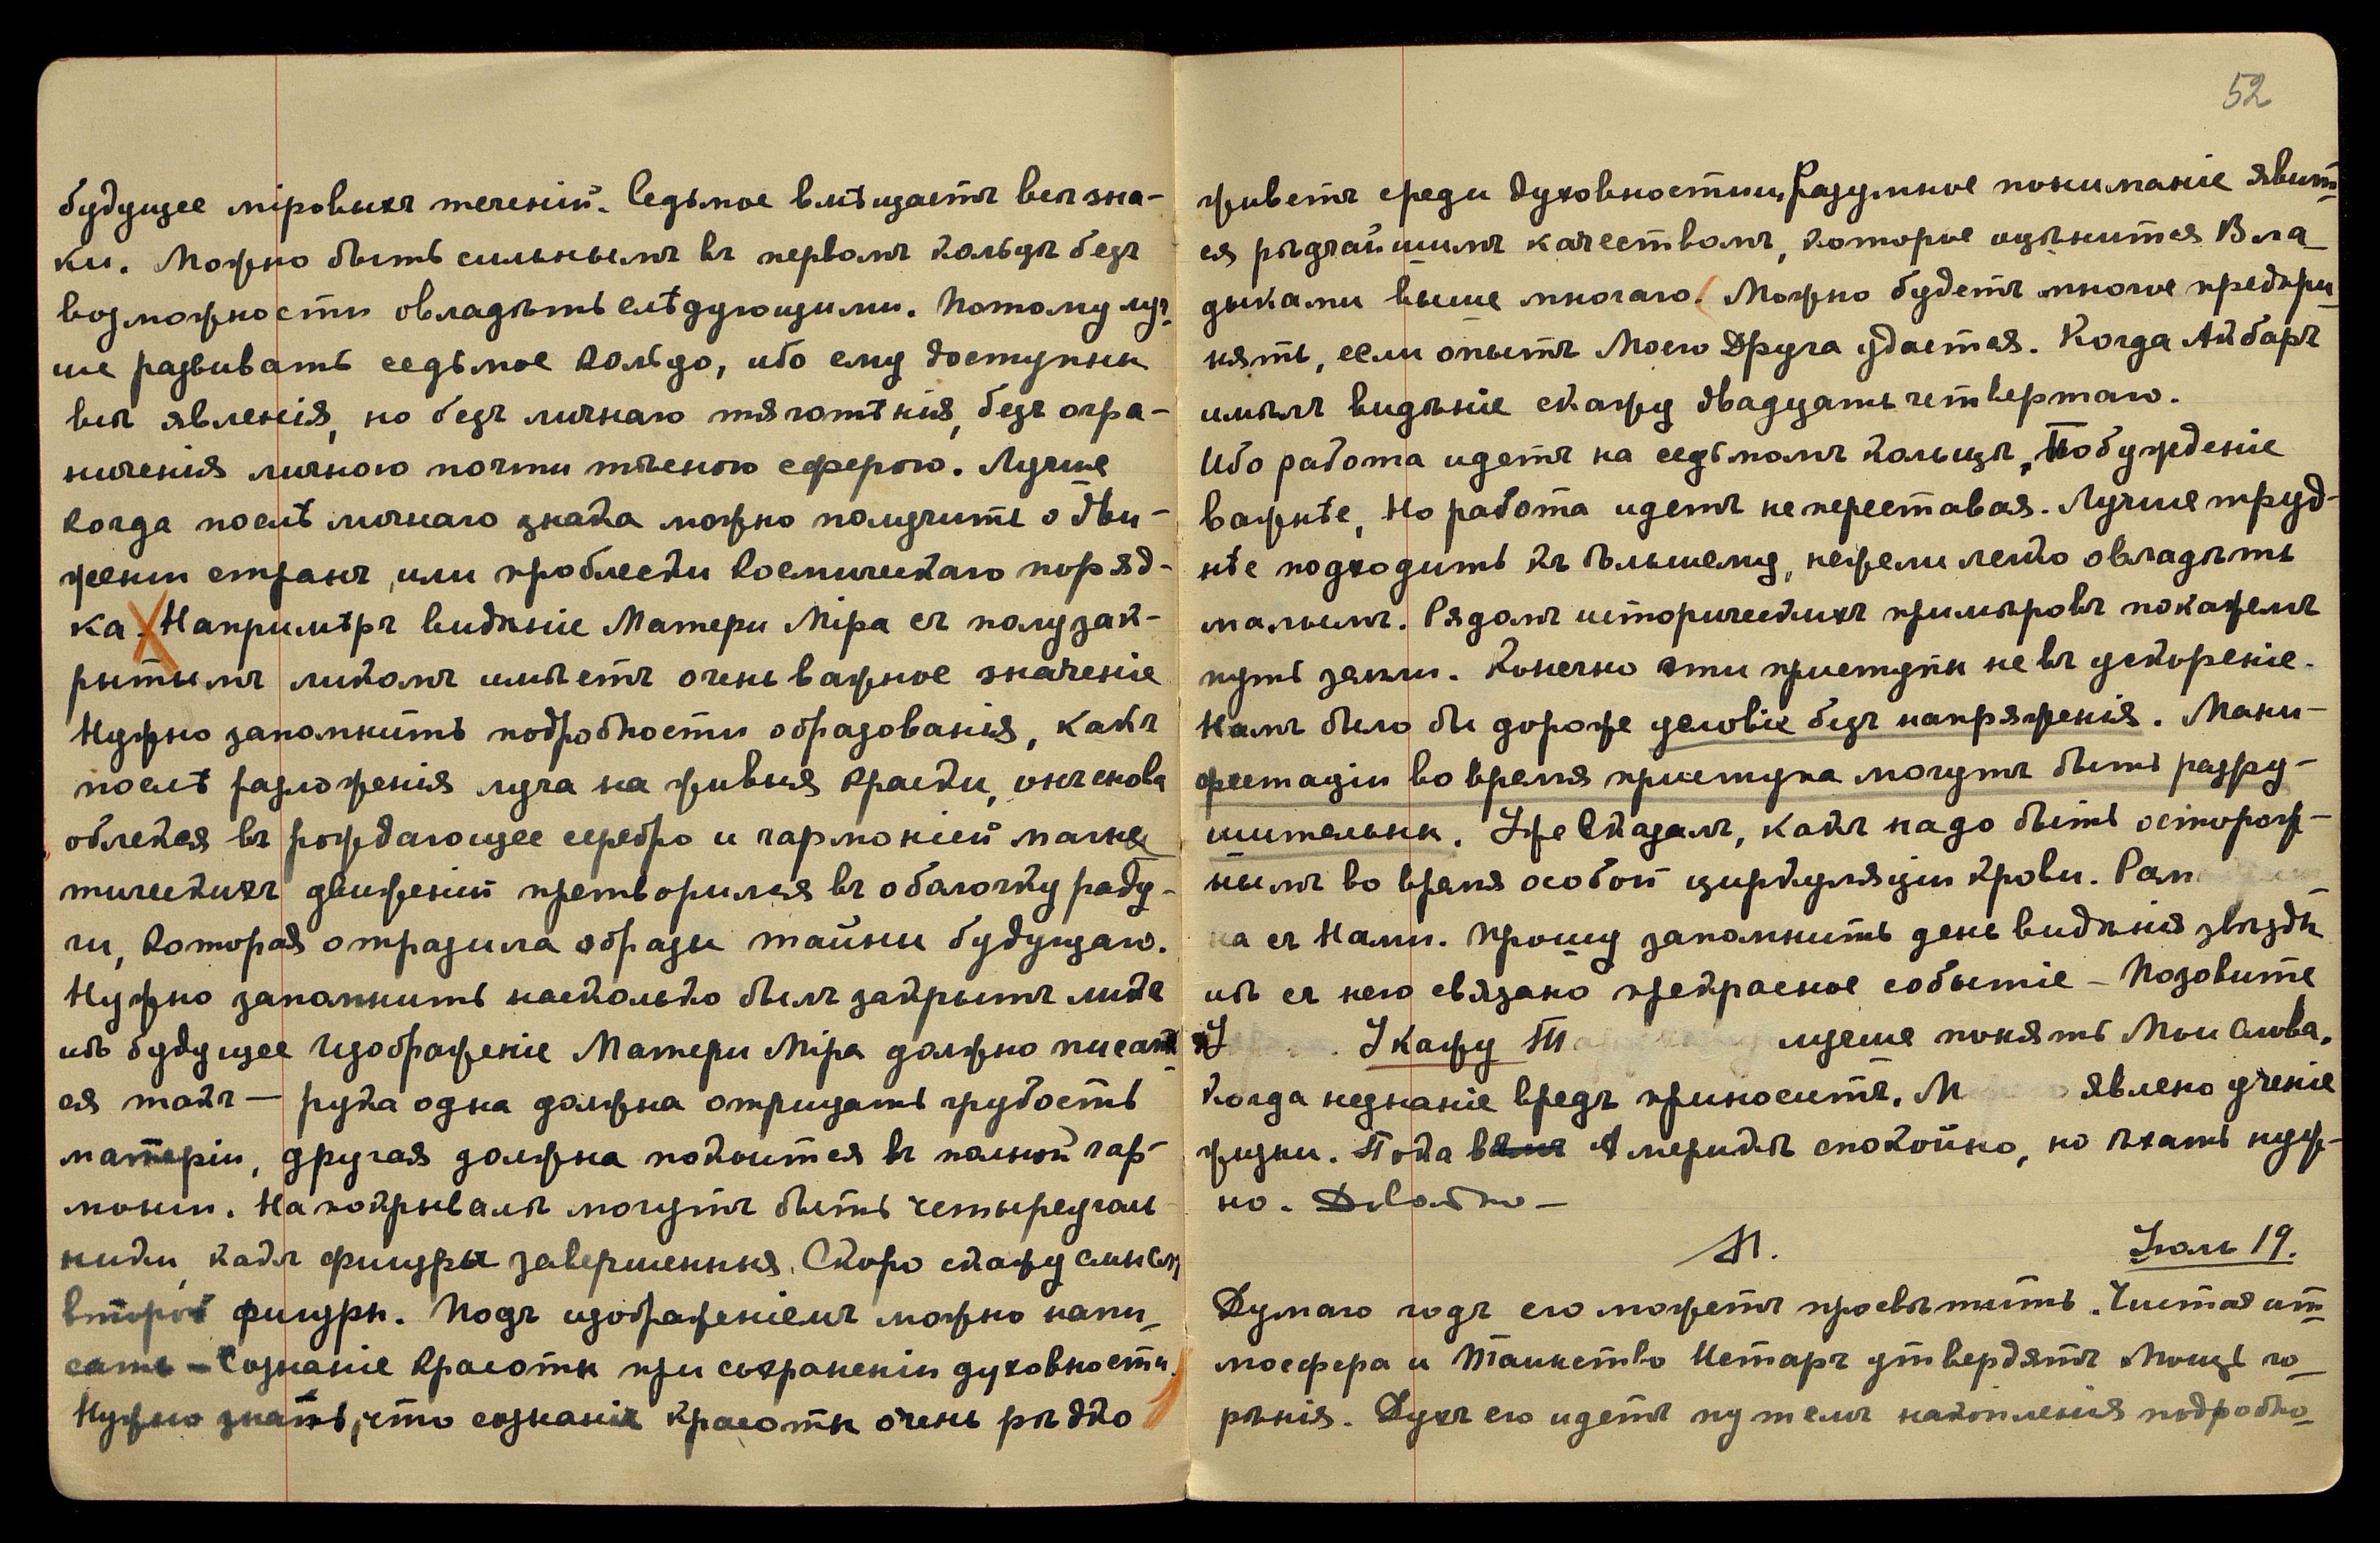 будущее мiровыхъ теченiй. Седьмое вмѣщаетъ всѣ зна-
ки. Можно быть сильнымъ въ первомъ кольцѣ безъ
возможности овладѣть слѣдующими. Потому луч-
ше развивать седьмое кольцо, ибо ему доступны
всѣ явленiя, но безъ личнаго тяготѣнiя, безъ огра-
ниченiя личною почти тѣсною сферою. Лучше
когда послѣ личнаго знака можно получить о дви-
женiи странъ, или проблески космическаго поряд-
ка. Напримѣръ видѣнiе Матери Мiра съ полузак-
рытымъ ликомъ имѣетъ очень важное значенiе
Нужно запомнить подробности образованiя, какъ
послѣ разложенiя луча на живыя краски, онъ снова
облекся въ рождающее серебро и гармонiей магне
тическихъ движенiй претворился въ оболочку раду-
ги, которая отразила образы тайны будущаго.
Нужно запомнить насколько былъ закрытъ ликъ
ибо будущее Изображенiе Матери Мiра должно писать
ся такъ — рука одна должна отрицать грубость
матерiи, другая должна покоится въ полной гар-
монiи. На покрывалѣ могутъ быть четыреуголь-
ники, какъ фигуры завершенныя. Скоро скажу смыслъ
второй фигуры. Подъ изображенiемъ можно напи-
сать — Сознанiе красоты при сохраненiи духовности.
Нужно знать, что сознанiе красоты очень рѣдко
52
живетъ среди духовности, Разумное пониманiе явит-
ся рѣдчайшимъ качествомъ, которое оцѣнится Вла-
дыками выше многаго. Можно будетъ многое предпри-
нять, если опытъ Моего Друга удастся. Когда Акбаръ
имѣлъ видѣнiе скажу двадцать четвертаго.
Ибо работа идетъ на седьмомъ кольцѣ, Побужденiе
важнѣе, Но работа идетъ не переставая. Лучше труд-
нѣе подходить къ большему, нежели легко овладѣть
малымъ. Рядомъ историческихъ примѣровъ покажемъ
путь земли. Конечно эти приступы не въ ускоренiе.
Намъ было бы дороже условiе безъ напряженiя. Мани-
фестацiи во время приступа могутъ быть разру-
шительны. Уже Сказалъ, какъ надо быть осторож-
нымъ во время особой циркуляцiи крови. Рам
на съ Нами. Прошу запомнить день видѣнiя звѣзды
ибо съ нею связано прекрасное событiе — Позовите
У Укажу Т лучше понять Мои Слова.
Когда незнанiе вредъ приноситъ. М явлено ученiе
жизни. Пока въ Америкѣ спокойно, но ѣхать нуж-
но. Довольно —
М. Iюль 19.
Думаю годъ его можетъ просвѣтить. Чистая ат-
мосфера и Таинство Истаръ утвердятъ Мощь го-
рѣнiя. Духъ его идетъ путемъ накопленiя подробно-